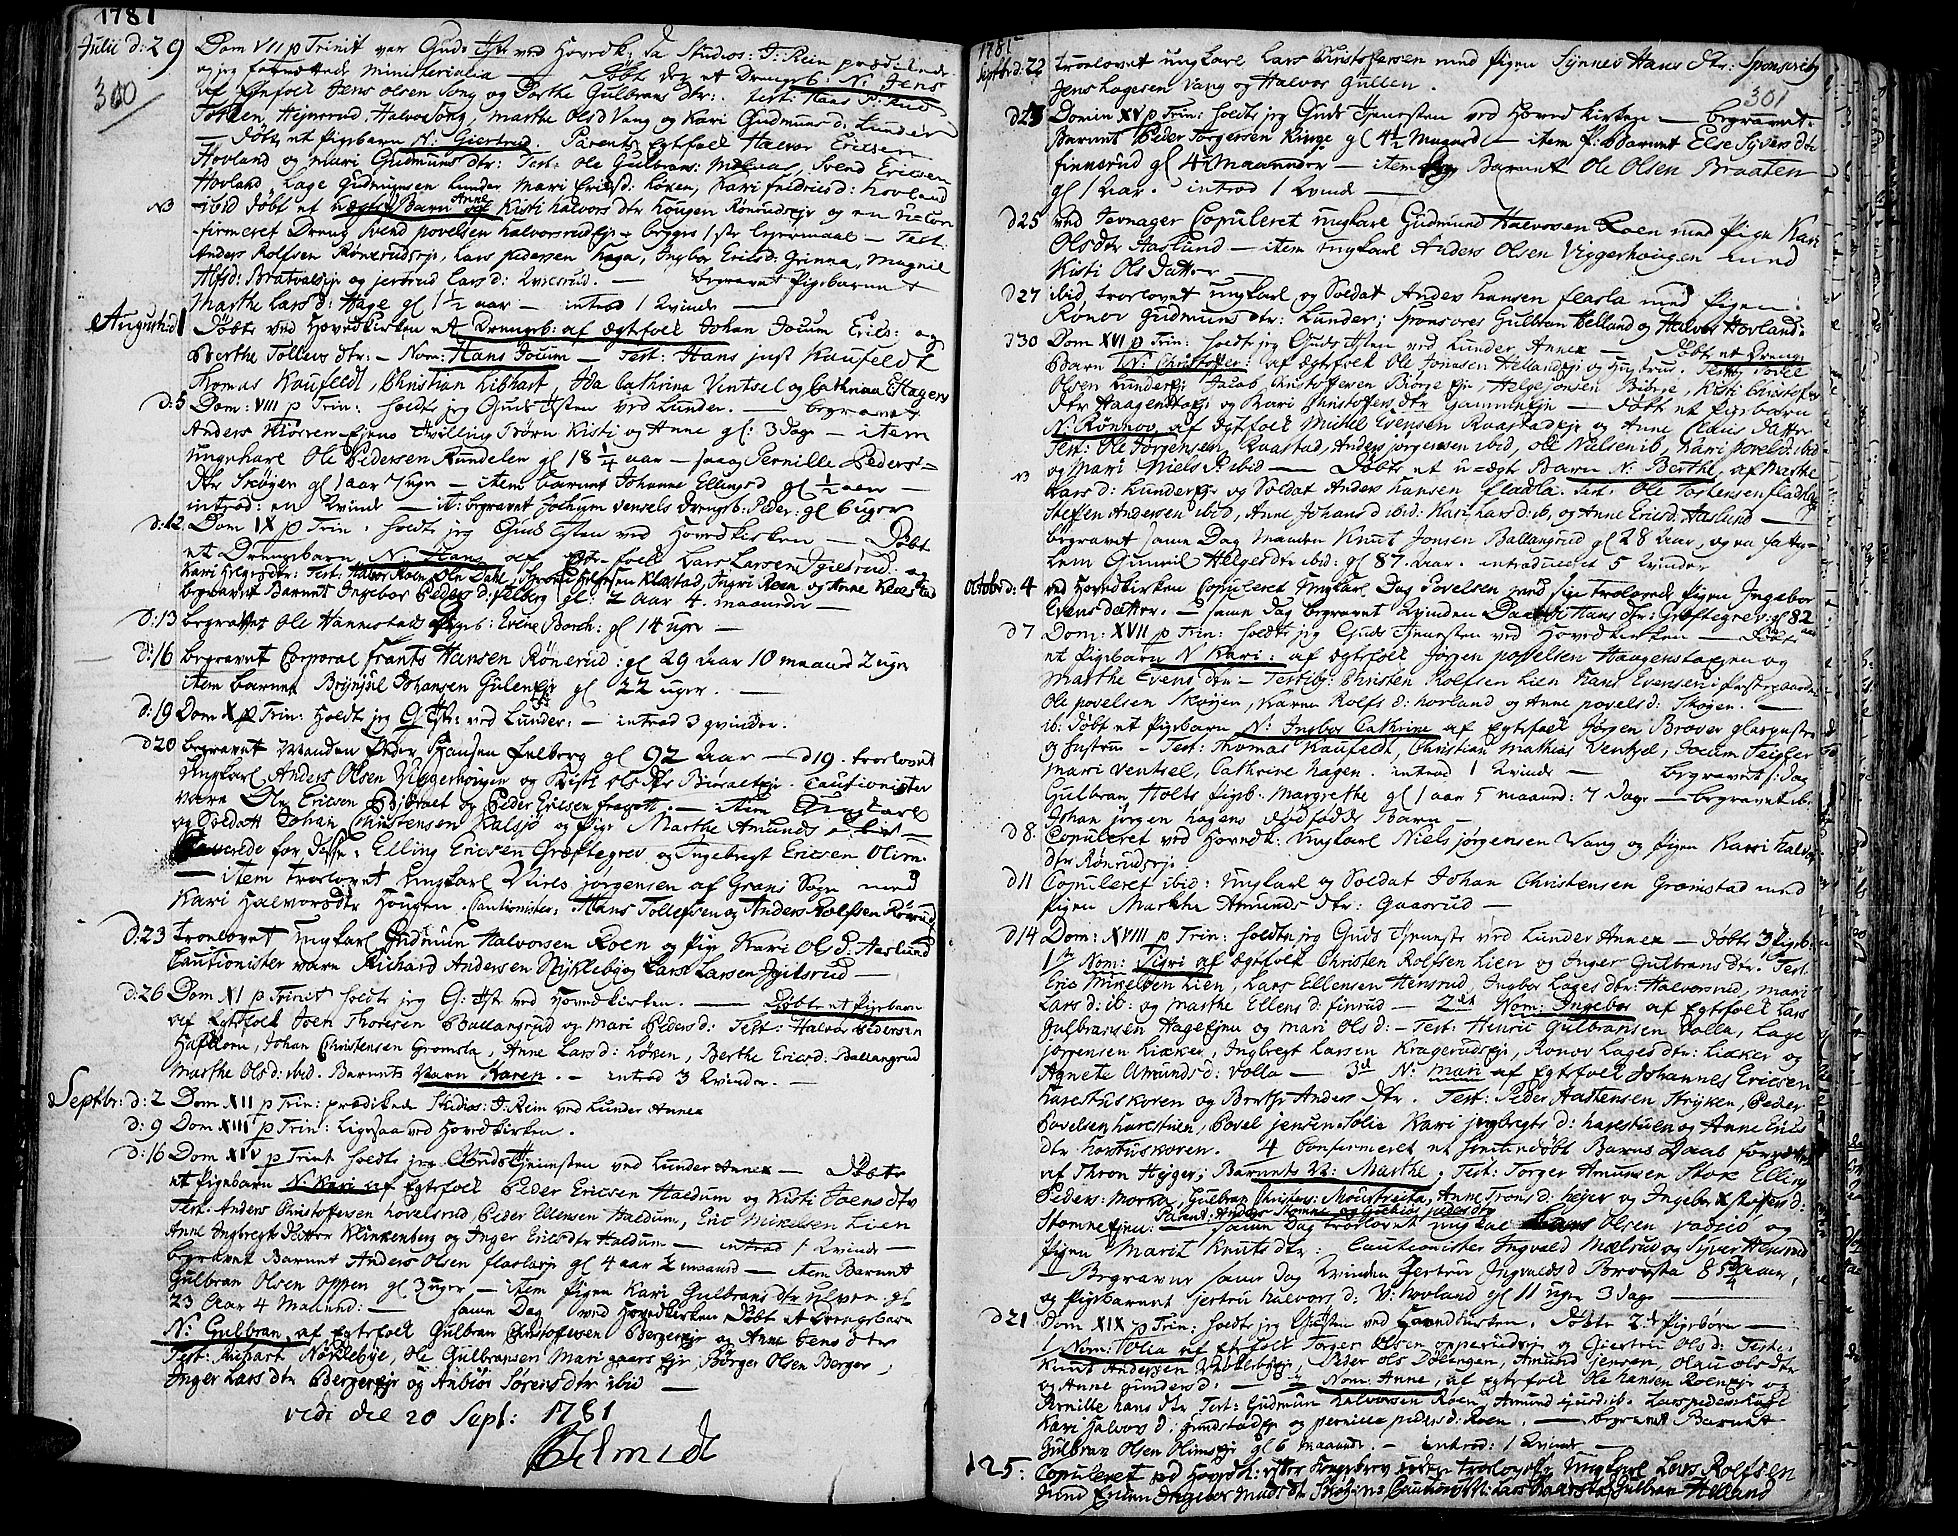 1781
Julii d: 29 Dom VII p Trinit var Guds Tjst ved Hovedk: da Studios: J: Rein prædikede
300 og jeg forrettede Ministerialia — Døbt et Drengeb: N: Jens
af Egtfolk Jens Olsen Tong og Dorthe Gulbrans dtr: Test: Hans
Hejnsrud, Halvor Tong, Marthe Olsd Vang og Kari Gudmuns d: Lunder
— Døbt et Pigebarn N: Giertrud. Parent: Egtfolk Halvor Ericsen
Hovland og Mari Gudmuns dtr: Test: Ole Gulbrans: Svend Ericsen
Hovland, Lage Gudmunsen Lunder, Mari Ericsd: Løken, Kari Fredricsd: Hovland
NB — ibid døbt et uægte Barn Anne Kisti Halvors dtr Hougen Rønrudseje og en u-con
firmeret Dreng Svend Povelsen Halvorsrudeje begges 1ste Lejermaal — Test:
Anders Rolfsen Rønerudseje, Lars Pedersen Haga, Ingbor Ericsd: Grinna, Magnil
Alfsd: Bratvaldseje og Larsd: — begravet Pigebarnet
Marthe Lars d: Hage gl 1 1/2 aar — introd 1 Kvinde —
Augusti d 1 Døbte ved Hovedkirken et Drengeb: af Egtfolk Johan Jocum Erics: og
Berthe Tollevs dtr: — Nom: Hans Jocum — Test: Hans just Kaufeldt
Thomas Kaufeldt, Christian Libhart, Ida Cathrina Ventsel og Cathrina Hagen
d: 5 Dom: VIII p Trin: holdt jeg Guds Tjsten ved Lunder. — begravet
Anders Ejens Tvilling Børn Kisti og Anne gl: 3 Dage — item
ungekarl Ole Pedersen Rundelen gl 18 1/4 aar — Pernille Peders
dtr Skøyen gl 1 aar 7 ugr — item barnet Johanne Ellingsd gl 1/2 aar —
introd: en Kvinde — it: begravet Jochum Vensels Drengeb: Peder: gl 6 uger
d: 12 Dom IX p Trin: holdt jeg Guds Tjsten ved Hovedkirken — Døbt
et Drengebarn N: Hans af Egtefolk Lars Larsen Igielsrud: og
Kari Helgesdtr: Test: Halvor Roen, Ole Dahl, Klæstad, Ingri Roen og Anne Klæstad
begravet Barnet Ingebor Peders d: Felberg gl: 2 Aar 4. maander —
d: 13 begravet Ole Hannestads Pigeb: Evene Barch: gl 14 uger —
d: 16 begravet Corporal Frants Hansen Rønerud: gl 29 Aar 10 maaned 2 ugr
item barnet Brynjul Johansen Guleneje gl 22 uger. —
d: 19 Dom X p Trin: Holdt jeg G: Tjst: ved Lunder: — introd 3 qvinder.
d 20 begravet Manden Peder Hansen Felberg gl 92 Aar — d 19. trolovet
Ungkarl Anders Olsen Viggerhougen og Kisti Ols dtr Cautionister
vare Ole Ericsen og Peder Ericsen — item Ungkarl
og Soldatt Johan Christensen Kalsjø og Pige Marthe Amunds
for disse: Elling Ericsen Græftegrev og Ingebregt Ericsen Olim.
— item Trolovet Ungkarl Niels Jørgensen af Grans Sogn med
Kari Halvorsdtr Hougen. Cautionister: Hans Tollefsen og Anders Rolfsen Rønrud
d: 23 trolovet Ungkarl Gudmun Halvorsen Roen og Pige Kari Ols d: Aaslund
Cautionister vare Richard Andersen Nykleby og Lars Larsen Igielsrud —
d: 26 Dom XI p Trinit holdt jeg G: Tjst ved Hovedkirken. — Døbt et Pigebarn
af Egtfolk Joen Thoresen Ballangrud og Mari Peders d: Test: Halvor Pedersen
Hafkorn, Johan Christensen Gromsta, Anne Lars d: Løken, Berthe Ericsd: Ballangrud
Marthe Ols d: ibid. Barnets Navn Karen. — introd 3 Kvinder. —
Septbr: d: 2 Dom XII p Trin: prædikede Studios: J: Rein ved Lunder Annex
d: 9 Dom XIII p Trin: Ligesaa ved Hovedkirken.
d: 16 Dom XIV p Trinit holdt jeg Guds Tjenesten ved Lunder Annex — Døbte
et Pigebarn N: Kari af Egtfolk Peder Ericsen Haldum og Kisti Joens dtr
Test: Anders Christophersen Lovelsrud, Peder Ellensen Haldum, Eric Mikelsen Lien
Anne Ingbregt Datter Klinkenberg og Inger Ericsdtr Haldum — introd 1 Kvinde —
begravet Barnet Anders Olsen Flaslaeje gl 4 aar 2 maaned — item Barnet
Gulbran Olsen Oppen gl 3 uger — item Pigen Kari Gulbrans dtr Ulven gl
23 Aar 4 Maaned: — samme Dag ved Hovedkirken Døbt et Drengebarn
N: Gulbran af Egtfolk Gulbran Christofersen Bergereje og Anne Jens dtr
Test: Richart Nøklebye, Ole Gulbransen Mari gaars eje, Børger Olsen Berger,
Inger Lars dtr Bergereje og Anbiør Sørens dtr ibid —
vidi die 20 Sept: 1781
1781
Septbr d: 22 troelovet ungkarl Lars Christofersen med Pigen Synnev Hans dtr: Sponsores
Jens Lagesen Vang og Halvor Gullen.
301
d 23 Domin XV p Trin: holdt jeg Guds Tjenesten ved Hovedkirken — begravet
Barnet Peder Torgersen Kinge gl 4 1/2 Maaned — item P: Barnet Else Syvers dtr
Finnsrud gl 4 Maaneder — item Barnet Ole Olsen Braaten
gl 1 Aar. introd 1 Kvinde —
d 25 ved Jevnager Copuleret ungkarl Gudmund Halvorsen Roen med Pige Kari
Olsdtr Aaslund — item ungkarl Anders Olsen Viggerhougen med
Kisti Ols Datter —
d 27 ibid, trolovet ungkarl og Soldat Anders Hansen Flasla med Pigen
Ronov Gudmuns dtr: Lunder; sponsores Gulbran Helland og Halvor Hovland.
d 30 Dom XVI p Trin: holdt jeg Guds Tjsten ved Lunder Annex — Døbt et Drenge
Barn N: Christoffer: af Egtfolk Ole Jonasen Hellandseje og Hustrue. Test: Povel
Olsen Lundereje Jacob Christoffersen Biørge eje, Helge Jonsen Biørge, Kisti Christofer
dtr Haagenstadeje og Kari Christoffers dtr Gammeneje — Døbt et Pigebarn
N: Rønnov af Egtfolk Mickel Evensen Raastadeje og Anne Claus Datter
Test: Ole Jørgensen Raastad, Anders Jørgensen ibid, Ole Nielsen ib, Kari Povelsd: ibid
og Mari Niels d: ibid — Døbte et u=ægte Barn N: Berthe, af Marthe
NB Lars d: Lundereje og Soldat Anders Hansen Flasla. Test: Ole Tostensen Flasla
Steffen Andersen ibid, Anne Johans d ibid: Kari Lars d: ib, og Anne Erics d. Aaslund —
begravet samme Dag Manden Knut Jonsen Ballangrud gl 28 Aar, og en fattig
Lem Gunnil Helgesdtr ibid: gl 87. Aar. introduceret 5 Kvinder
Octobr d: 4 ved Hovedkirken Copuleret Ungkarl Dag Povelsen med sin trolovede Pigen Ingebor
Evens datter. — samme dag begravet Kvinden Hans dtr: Græftegrev: gl 82 aar
d 7 Dom: XVII p Trin: holdt jeg Guds Tjenesten ved Hovedkirken — Døbt
et Pigebarn N Kari: af Egtfolk Jørgen Povelsen Haagenstaejen og
Marthe Evens dtr — Testes: Christen Rolfsen Lien Hans Evensen i Prestegaarden
Ole Povelsen Skøyen, Karen Rolfs d: Hovland og Anne Povels d: Skøyen. —
ib: Døbt et Pigebarn N: Ingebor Cathrine af Egtfolk Jørgen Braver glaspuster
og Hustrue — Test: Thomas Kaufeldt, Christian Mathias Ventzel, Jocum Seigler
Mari Ventsel, Cathrine Hagen. introd 1 Kvinde — begravet s: Dag
Gulbran Holts Pigeb: Margrethe gl 1 aar 5 maaned: 7 Dage — begravet ib:
Johan Jørgen Hagens dødfødde Barn —
d 8. Copuleret ved Hovedk: Ungkarl Niels Jørgensen Vang og Pigen Kari Halvor
dtr Rønrudseje:
d 11 Copuleret ibid: Ungkarl og Soldat Johan Christensen Gromstad med
Pigen Marthe Amunds dtr: Gaasrud —
d 14 Dom: XVIII p Trin: holdt jeg Guds Tjeneste ved Lunder Annex — døbt 3 Pigeb:
1ste Nom: Sigri af Egtfolk Christen Rolfsen Lien og Inger Gulbrans dtr. Test:
Eric Mikelsen Lien, Lars Ellensen Hensrud, Ingbor Lages dtr: Halvorsrud, Mari
Lars d: ib: og Marthe Ellens d: Finrud — 2det Nom: Ingebor af Egtfolk Lars
Gulbransen Hageejen og Mari Ols d: — Test: Henric Gulbransen Volla, Lage
Jørgensen Liæker, Ingbregt Larsen Kragerudseje, Ronov Lages dtr: Liæker og
Agnete Amunds d: Volla — 3d N: Mari af Egtfolk Johannes Ericsen
Harestuskoven og Berthe Anders dtr. Test: Peder Aastensen Stryken, Peder
Povelsen Harestuen, Povel Jensen Solie Kari Ingbregts d: Harestuen og Anne Erics
dtr Harstuskoven. 4 Confirmeret et hiemmedøbt Barns Daab forrettet
af Thron Heyger, Barnets N: Marthe, Test: Torger Amunsen Stok Elling
Peders: Morka, Gulbran Christofs: Moestræita, Anne Trons d: Hejer og Ingebor Rolfs d:
Stomneejen: Parent: Anders Stomne og
samme Dag trolovet ungkarl Lars Olsen og
Pigen Marit Knuts dtr: Cautionister Ingvald Mælsrud og Syver Hensrud
— Begravne samme Dag Kvinden Jertru Ingvalds d Brovsta 85 3/4 aar,
og Pigebarnet Jertru Halvors d: N: Hovland gl 11 uger 3 dage —
d 21 Dom XIX p Trin: holdt jeg Tjsten ved Hovedkirken. Døbte 2de Pigebørn —
1 Nom: Olia af Egtfolk Torger Olsen Opperudseje og Giertru Ols d: Test:
Knut Andersen, Peder Ols Dølengen, Amund Jensen, Olau Ols dtr
og Anne Gunders d — 2 Nom: Anne, af Egtfolk Ole Hansen Roeneje og
Pernille Hans dtr Test: Gudmun Halvorsen Roen, Amund ib. Lars Peders:
Kari Halvors d: Hundstadeje og Pernille Peders d: Roen. — begravet Barnet
Gulbran Olsen Olimseje gl 6 maaneder. — introd: 1 Kvinde —
d 25: Copuleret ved Hovedk: efter trolovelse Ungkarl Lars Rolfsen
med Enken Ingebor Mads dtr Cautionist: Lars Gulbran Helland